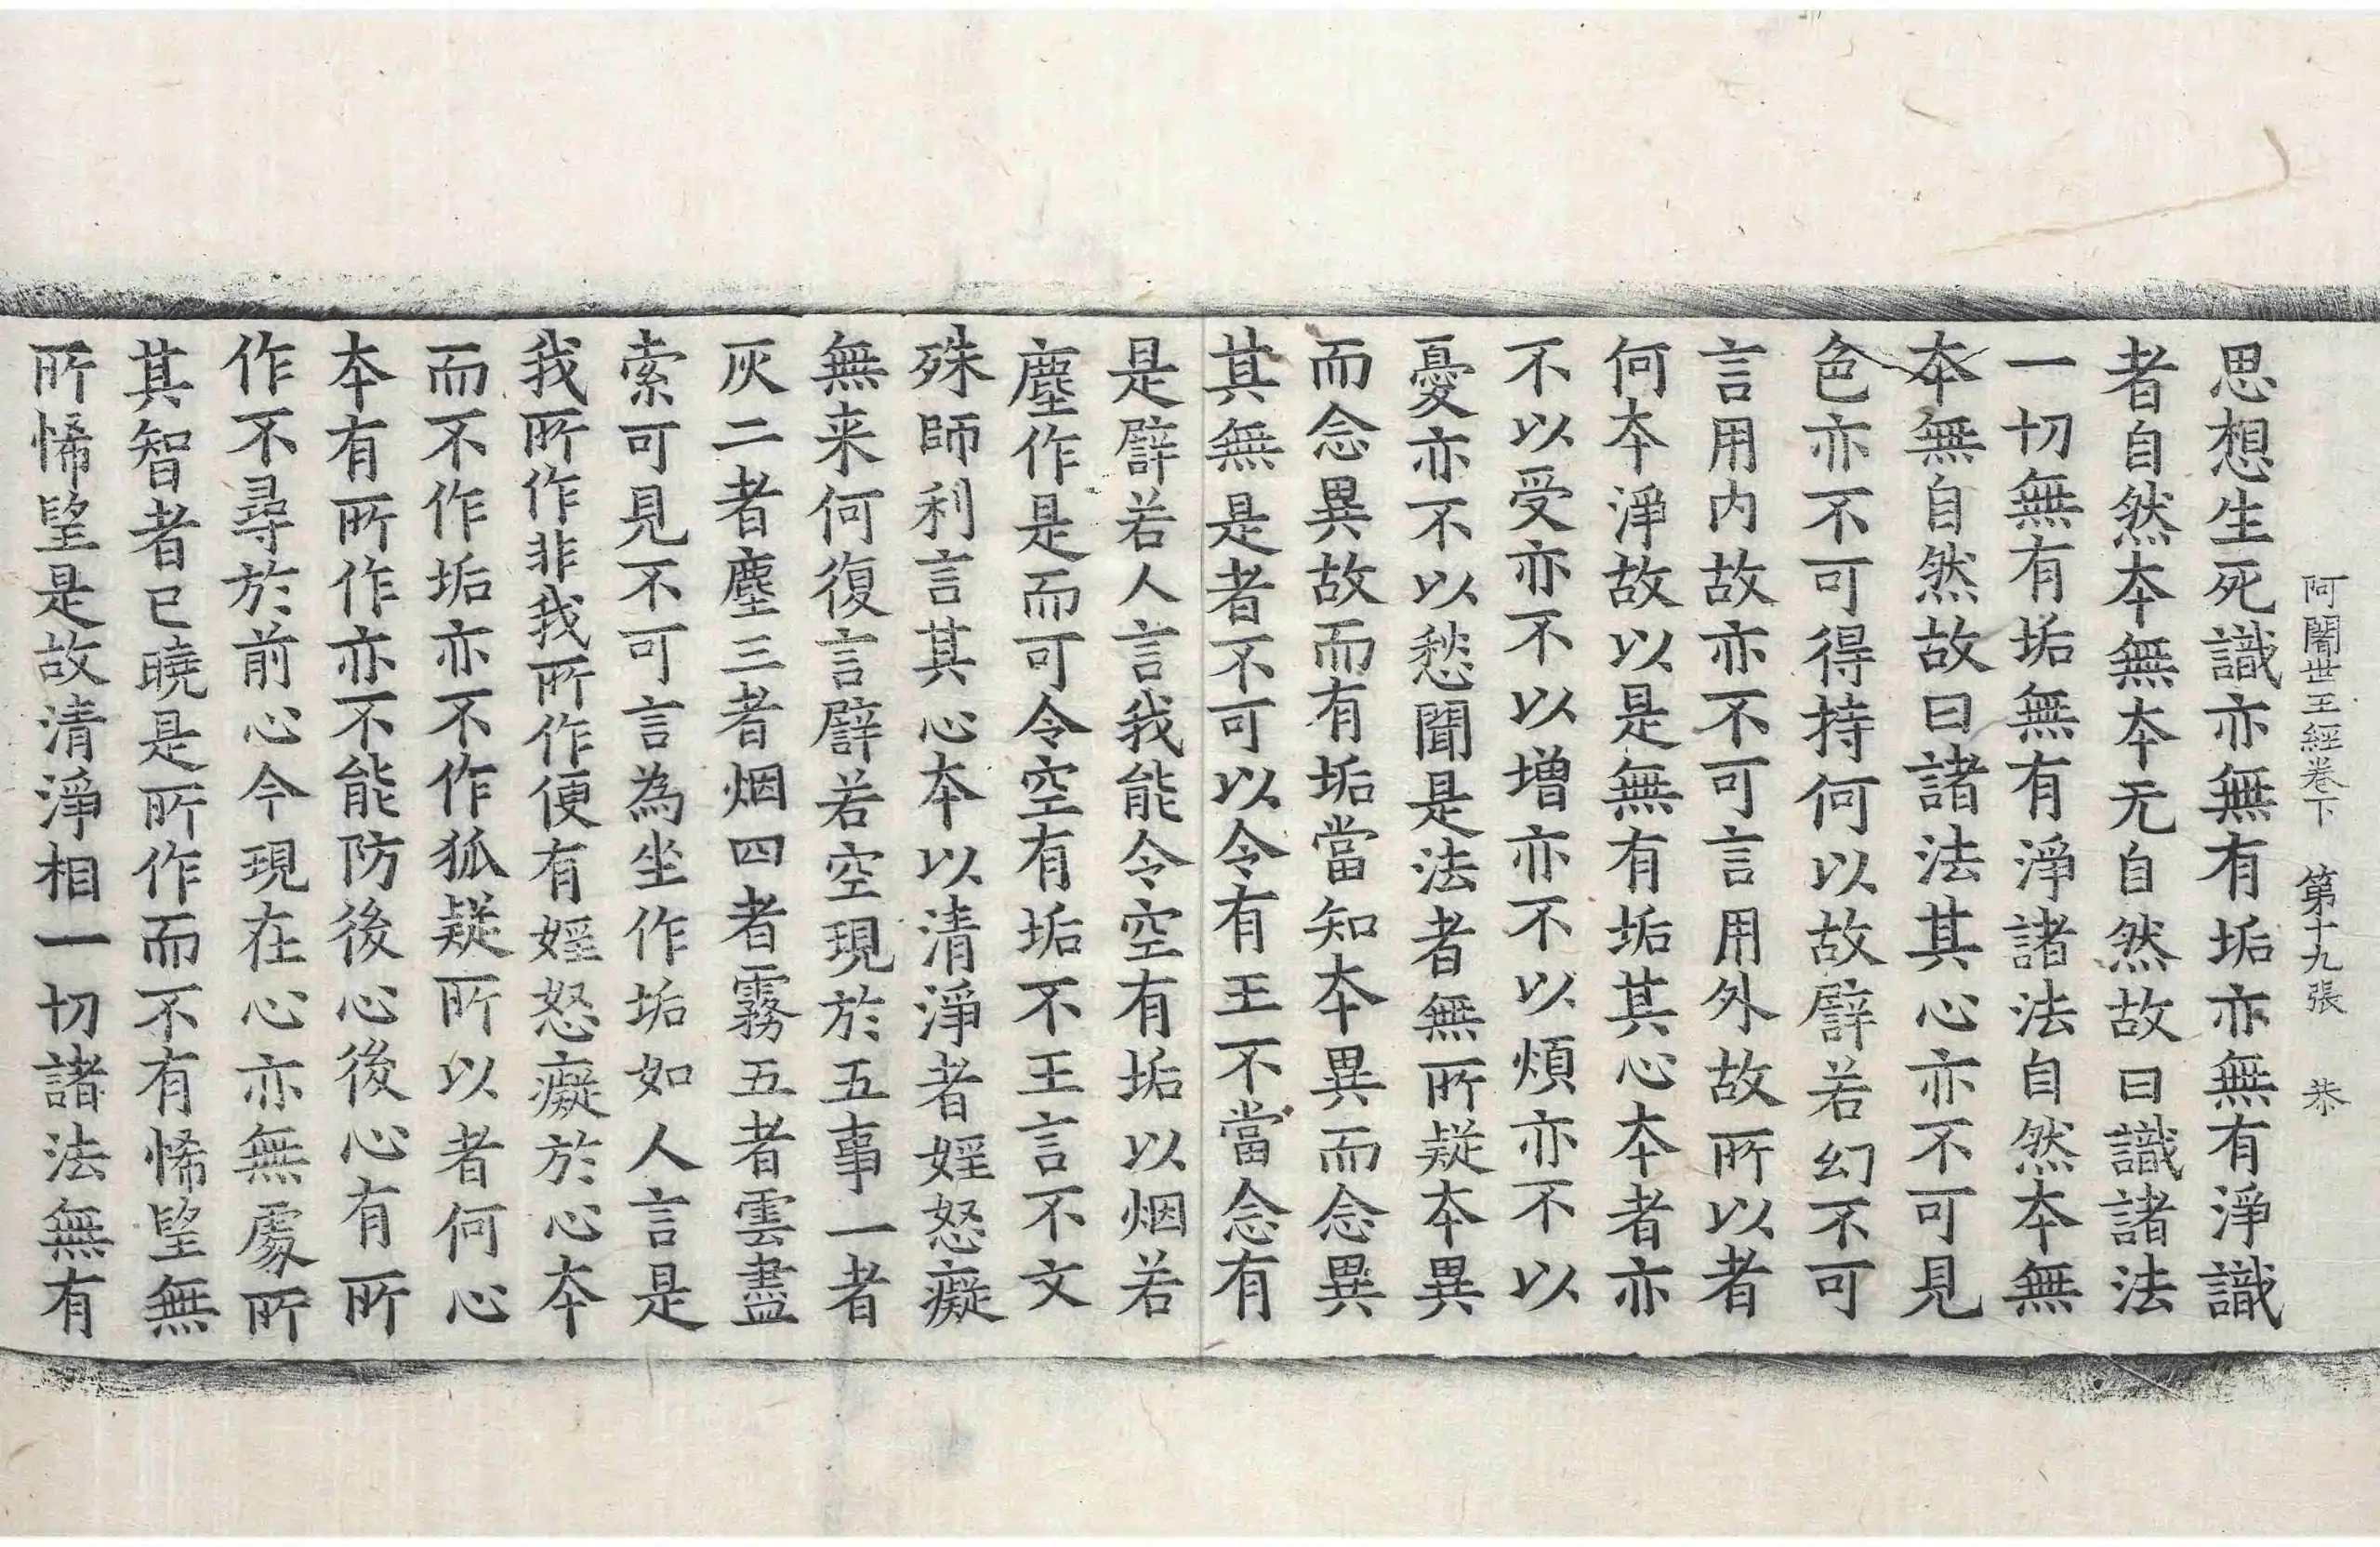 阿闍世王經卷下 第十九張 恭
思想生死識亦無有垢亦無有淨識
者自然本無本无自然故曰識諸法
一切無有垢無有淨諸法自然本無
本無自然故曰諸法其心亦不可見
色亦不可得持何以故譬若幻不可
言用内故亦不可言用外故所以者
何本淨故以是無有垢其心本者亦
不以受亦不以增亦不以煩亦不以
憂亦不以愁聞是法者無所疑本異
而念異故而有垢當知本異而念異
其無是者不可以令有王不當念有
是譬若人言我能令空有垢以烟若
塵作是而可令空有垢不王言不文
殊師利言其心本以清淨者婬怒癡
無来何復言譬若空現於五事一者
灰二者塵三者烟四者霧五者雲盡
索可見不可言為坐作垢如人言是
我所作非我所作便有婬怒癡於心本
而不作垢亦不作狐疑所以者何心
本有所作亦不能防後心後心有所
作不尋於前心今現在心亦無處所
其智者已曉是所作而不有悕望無
所悕望是故清淨相一切諸法無有